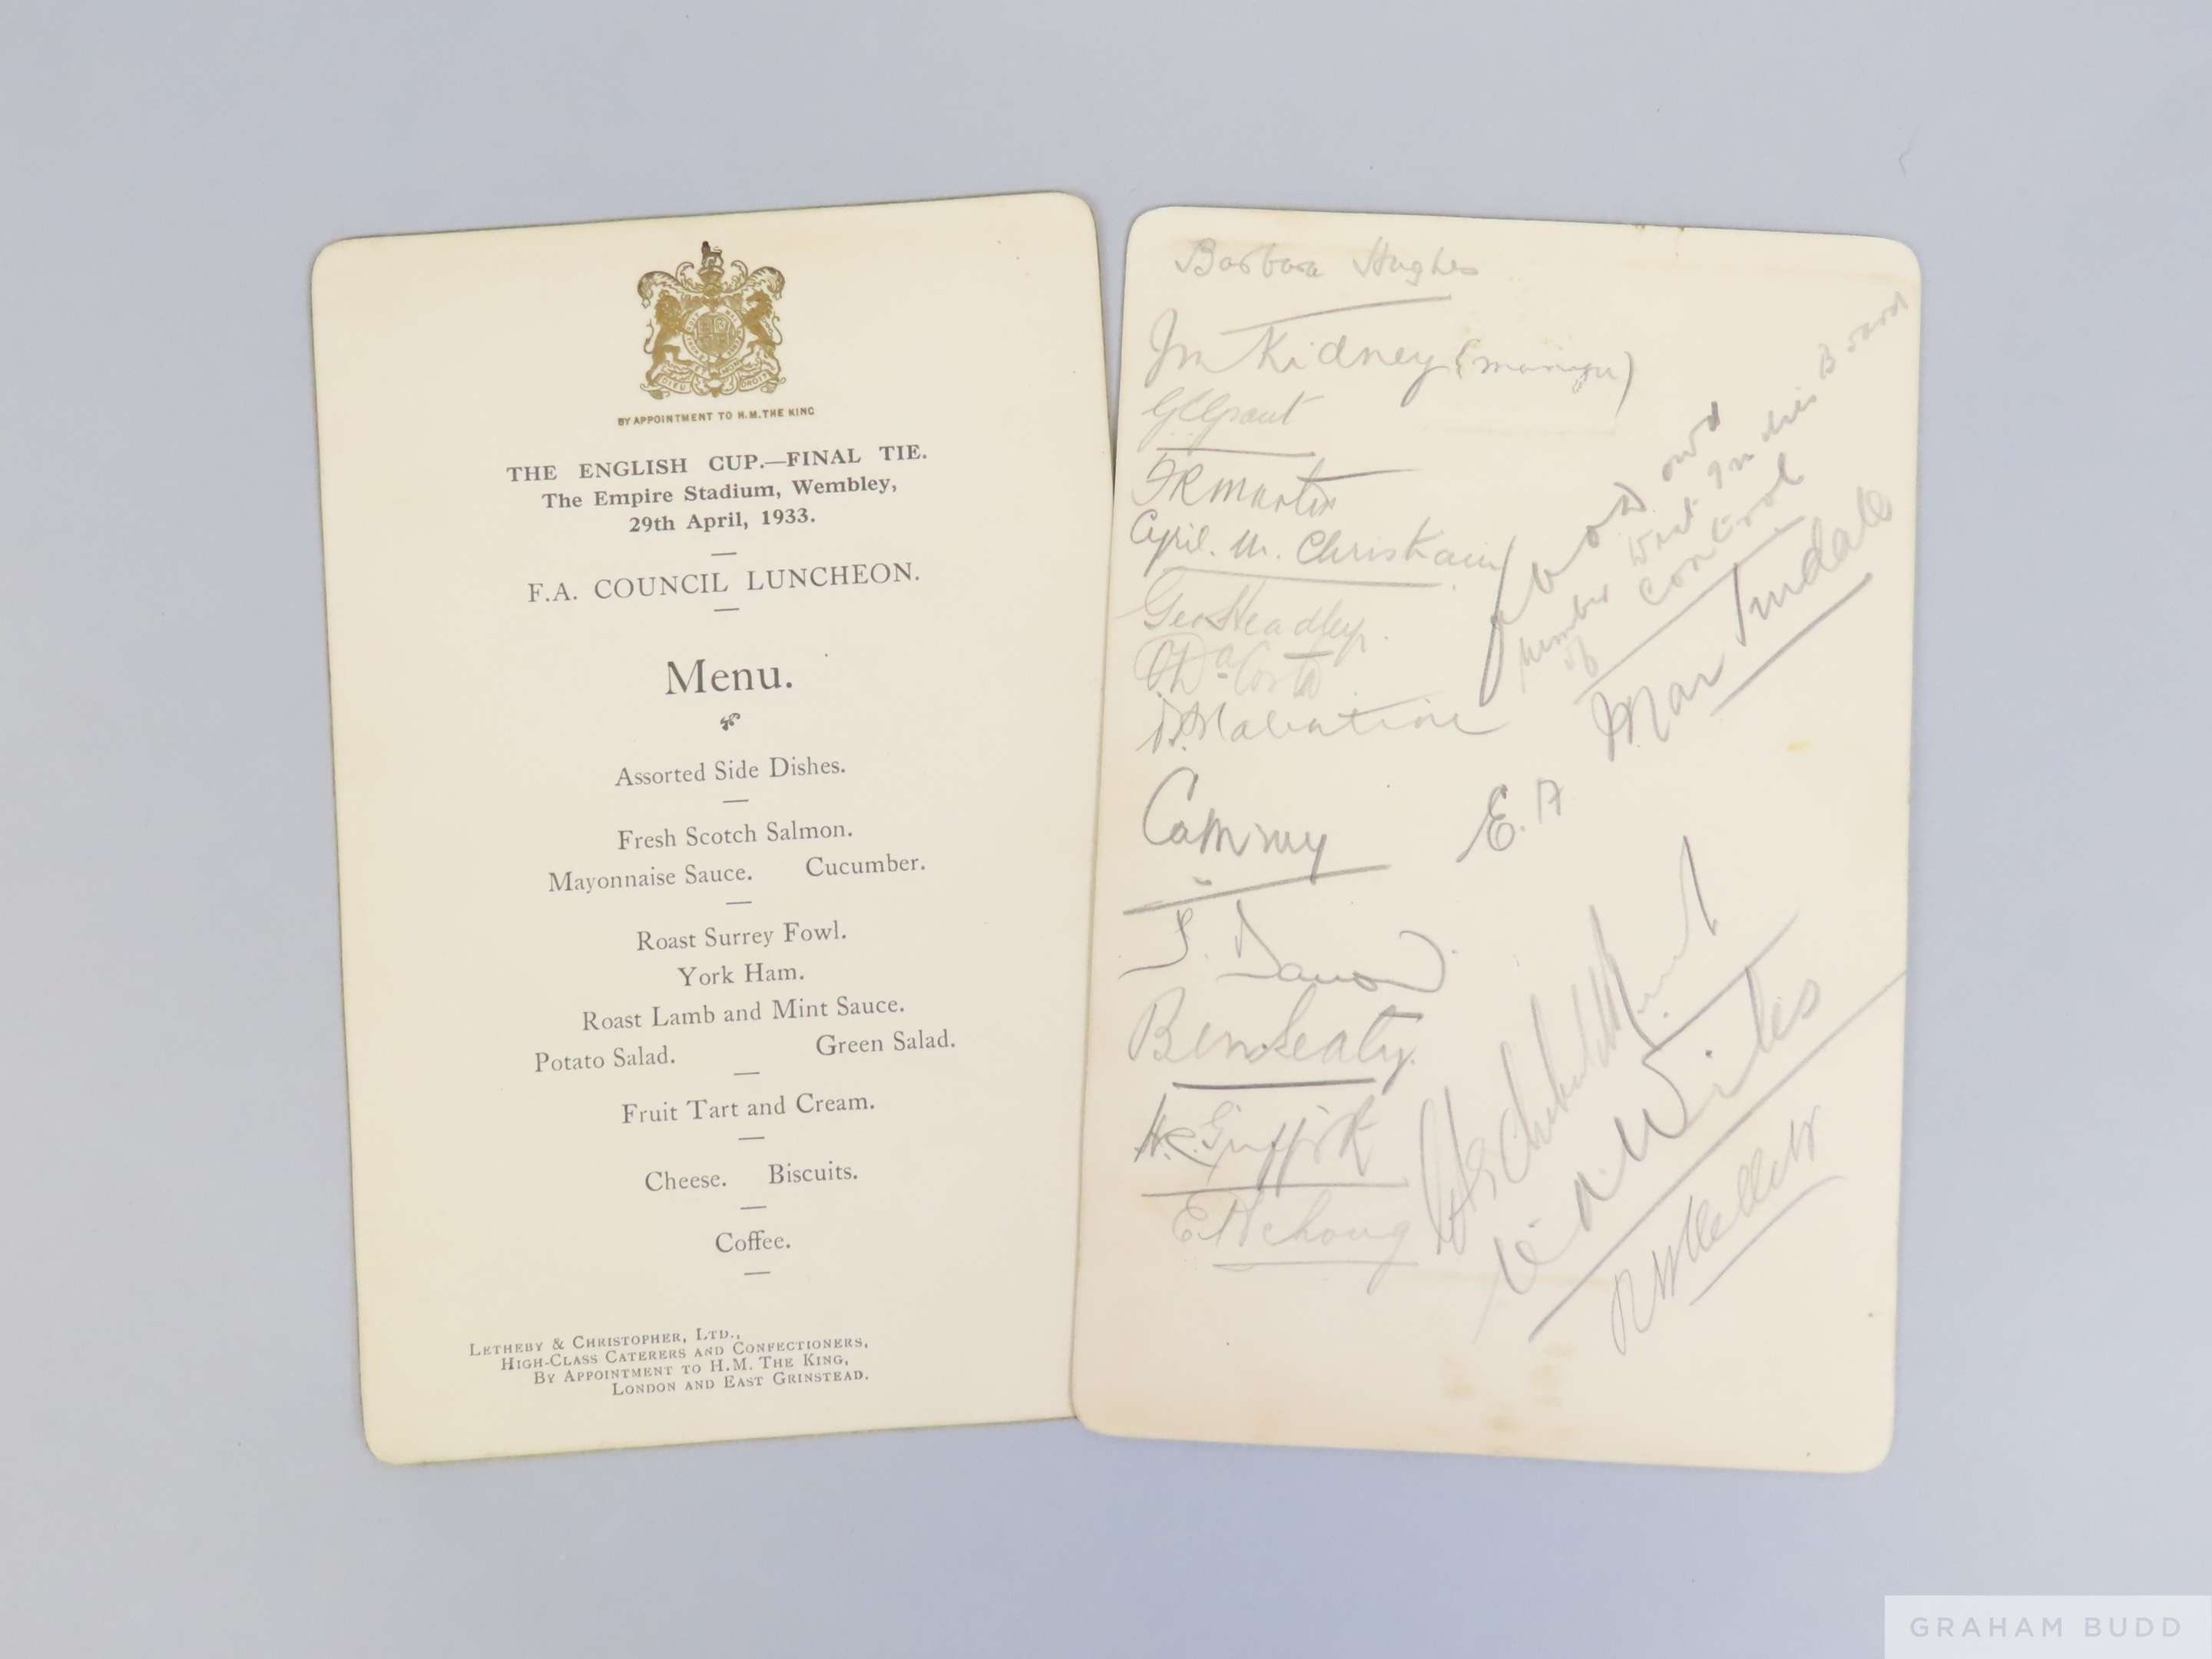 BY APPOINTMENT TO H.M. THE KING
THE ENGLISH CUP.—FINAL TIE.
The Empire Stadium, Wembley,
29th April, 1933.
F.A. COUNCIL LUNCHEON.
Menu.
Assorted Side Dishes.
Fresh Scotch Salmon.
Mayonnaise Sauce. Cucumber.
Roast Surrey Fowl.
York Ham.
Roast Lamb and Mint Sauce.
Potato Salad. Green Salad.
Fruit Tart and Cream.
Cheese. Biscuits.
Coffee.
LETHEBY & CHRISTOPHER, LTD.,
HIGH-CLASS CATERERS AND CONFECTIONERS,
BY APPOINTMENT TO H.M. THE KING,
LONDON AND EAST GRINSTEAD.
Barbara Hughes
Kidney (manager)
G C Grant
F R Martin
Cyril. M. Christiani
Geo Headley.
O Da Costa
Valentine
E. A
Martindale
Ben Sealey.
H.C. Griffith
E Achong
C.A. Wiles
member West Indies Board
of Control
GRAHAM BUDD